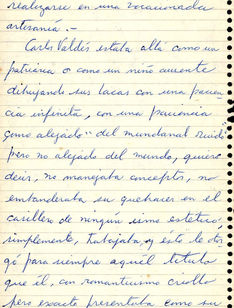 realizarse en una vocacionada
artesanía.-
Carlos Valdés estaba allá como un
patricio o como un niño ausente
dibujando sus lacas con una pacien
cia infinita, con una paciencia
como alejado "del mundanal ruido"
pero no alejado del mundo, quiero
decir, no manejaba conceptos, no
embanderaba su quehacer en el
casillero de ningún ismo estético,
simplemente, trabajaba, y ésto le otor
gó para siempre aquél título
que él, con romanticismo criollo
pero exacto presentaba como su